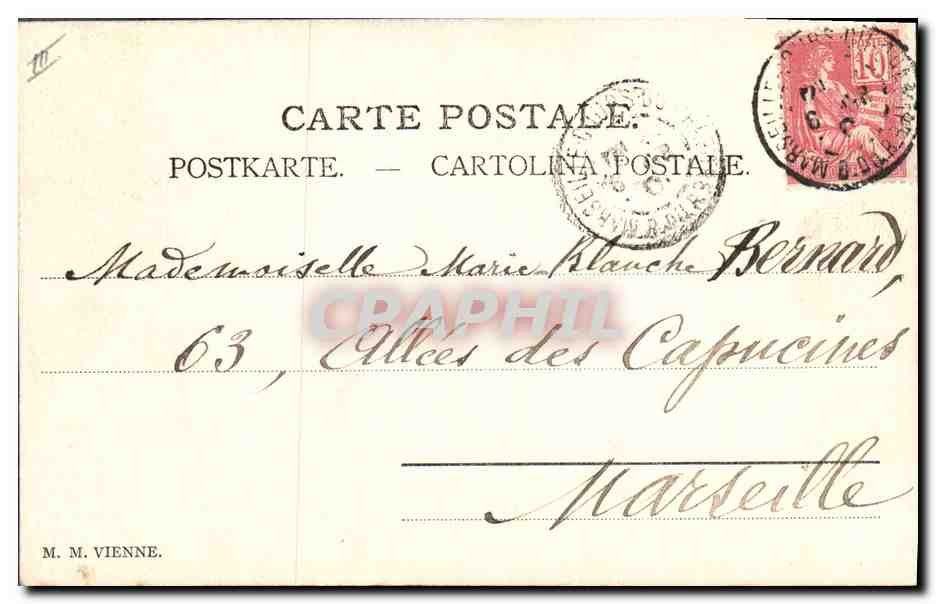 CARTE POSTALE.
POSTKARTE. — CARTOLINA POSTALE.
POSTES
10
MARSEILLE
MARSEILLE
Mademoiselle Marie Blanche Bernard,
CPAPHIL
63, Allées des Capucines
Marseille
M. M. VIENNE.